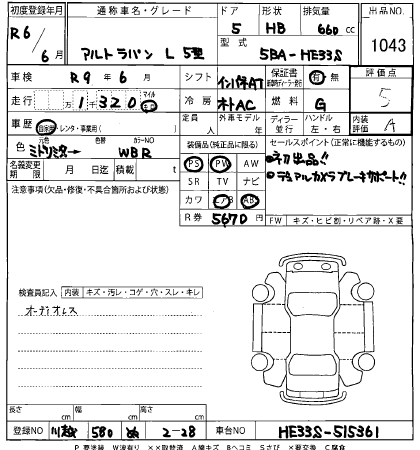 初度登録年月 通称車名・グレード ドア 形状 排気量 出品NO.
R6/6月 アルトラパン L 5型 5 HB 660 cc 1043
型式 5BA-HE33S
車検 R9年6月 シフト インパネAT 保証書 有 無 評価点 5
走行 万1千320 マイル Km 冷房 オートAC 燃料 G
車歴 自家用・レンタ・事業用( ) 定員 人 外車モデル 年 ディーラー 並行 ハンドル 左・右 内装評価 A
色 元色 色替 カラーNO WBR
名義変更期限 月 日迄 積載 t
装備品(純正品に限る) セールスポイント(正常に機能するもの)
PS PW AW
SR TV ナビ
カワ エアB ABS
R券 5670円
・初出品!!
・デュアルカメラブレーキサポート!!
FW キズ・ヒビ割・リペア跡・X要
注意事項(欠品・修復・不具合箇所および状態)
検査員記入 内装 キズ・汚レ・コゲ・穴・スレ・キレ
オーディオレス
長さ cm 幅 cm 高さ cm
登録NO 川越 580 め 2-28 車台NO HE33S-515361
P 要塗装 W波有り ××取替済 A線キズ Bヘコミ Sさび ×要交換 C腐食